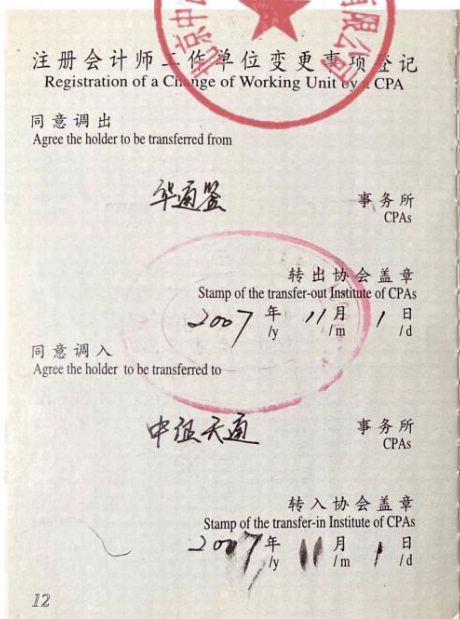 注册会计师工作单位变更事项登记
Registration of a Change of Working Unit by a CPA
同意调出
Agree the holder to be transferred from
华通鉴
事务所
CPAs
转出协会盖章
Stamp of the transfer-out Institute of CPAs
2007年11月1日
/y /m /d
同意调入
Agree the holder to be transferred to
中证天通
事务所
CPAs
转入协会盖章
Stamp of the transfer-in Institute of CPAs
2007年11月1日
/y /m /d
12